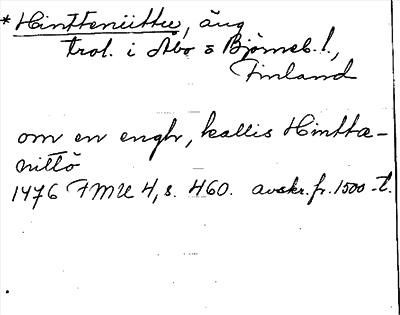 *Hinttaniittu, äng
trol. i Åbo & Björneb. l.,
Finland
om en engh, kallis Hintta-
nittö
1476 FMU 4, s. 460. avskr. fr. 1500-t.